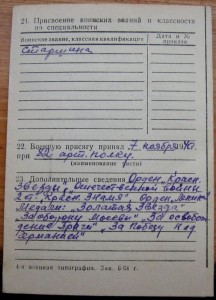 21. Присвоение воинских званий и классности
по специальности
Воинское звание, классная квалификация
Дата и №
приказа
Старшина
22. Военную присягу принял 7 ноября
при 82 арт. полку.
(наименование части)
23. Дополнительные сведения Орден „Красн.
Звезды", „Отечественной Войны
2 ст. „Красн. Знамя", Орден Ленин
Медали: „Золотая Звезда"
„За оборону Москвы", „За освобо-
ждение Праги" „За победу над
Германией"
4-я военная типография. Зак.